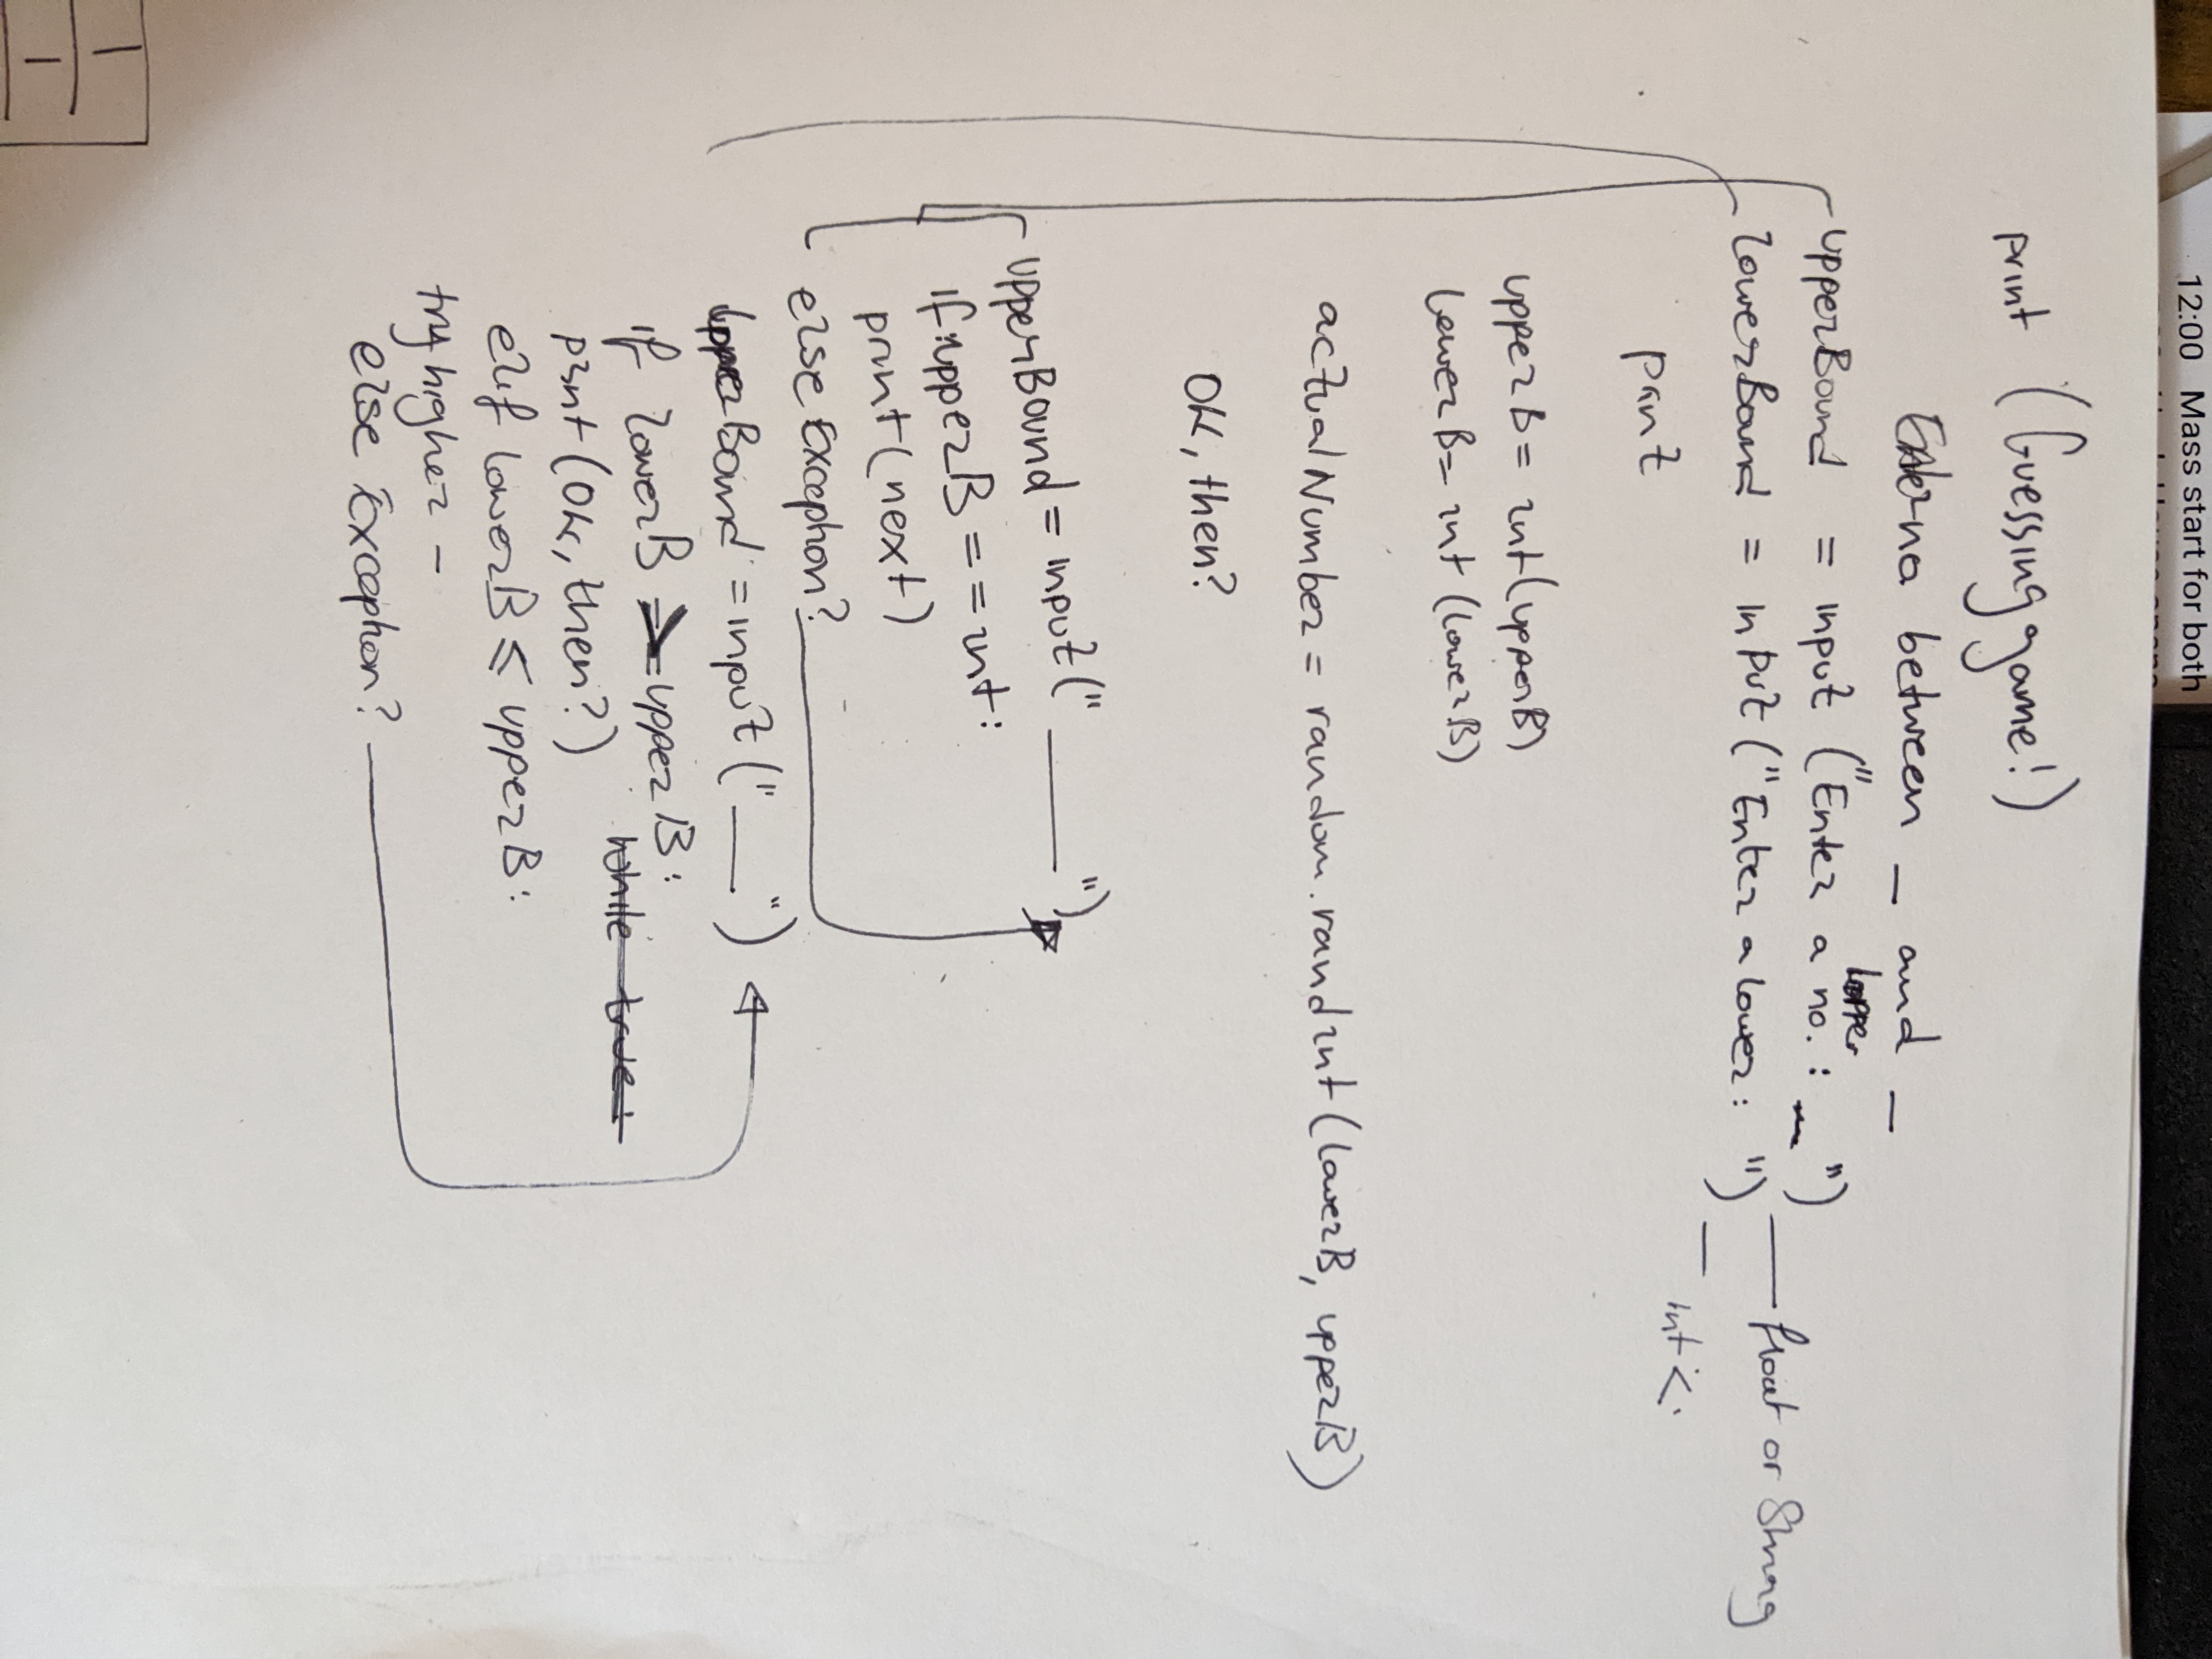 12:00 Mass start for both
print (Guessing game!)
Enter no between _ and _
upperBound = input ("Enter a upper no. : ") — float or String
lowerBound = input ("Enter a lower: ") — int <.
print
upperB = int(upperB)
lowerB = int(lowerB)
actualNumber = random.randint(lowerB, upperB)
OK, then?
upperBound = input(" ——— ")
if upperB == int:
print(next)
else Exception?
Bound = input(" —— ")
if lowerB >= upperB:
print(OK, then?) while true:
elif lowerB ≤ upperB:
try higher -
else Exception?